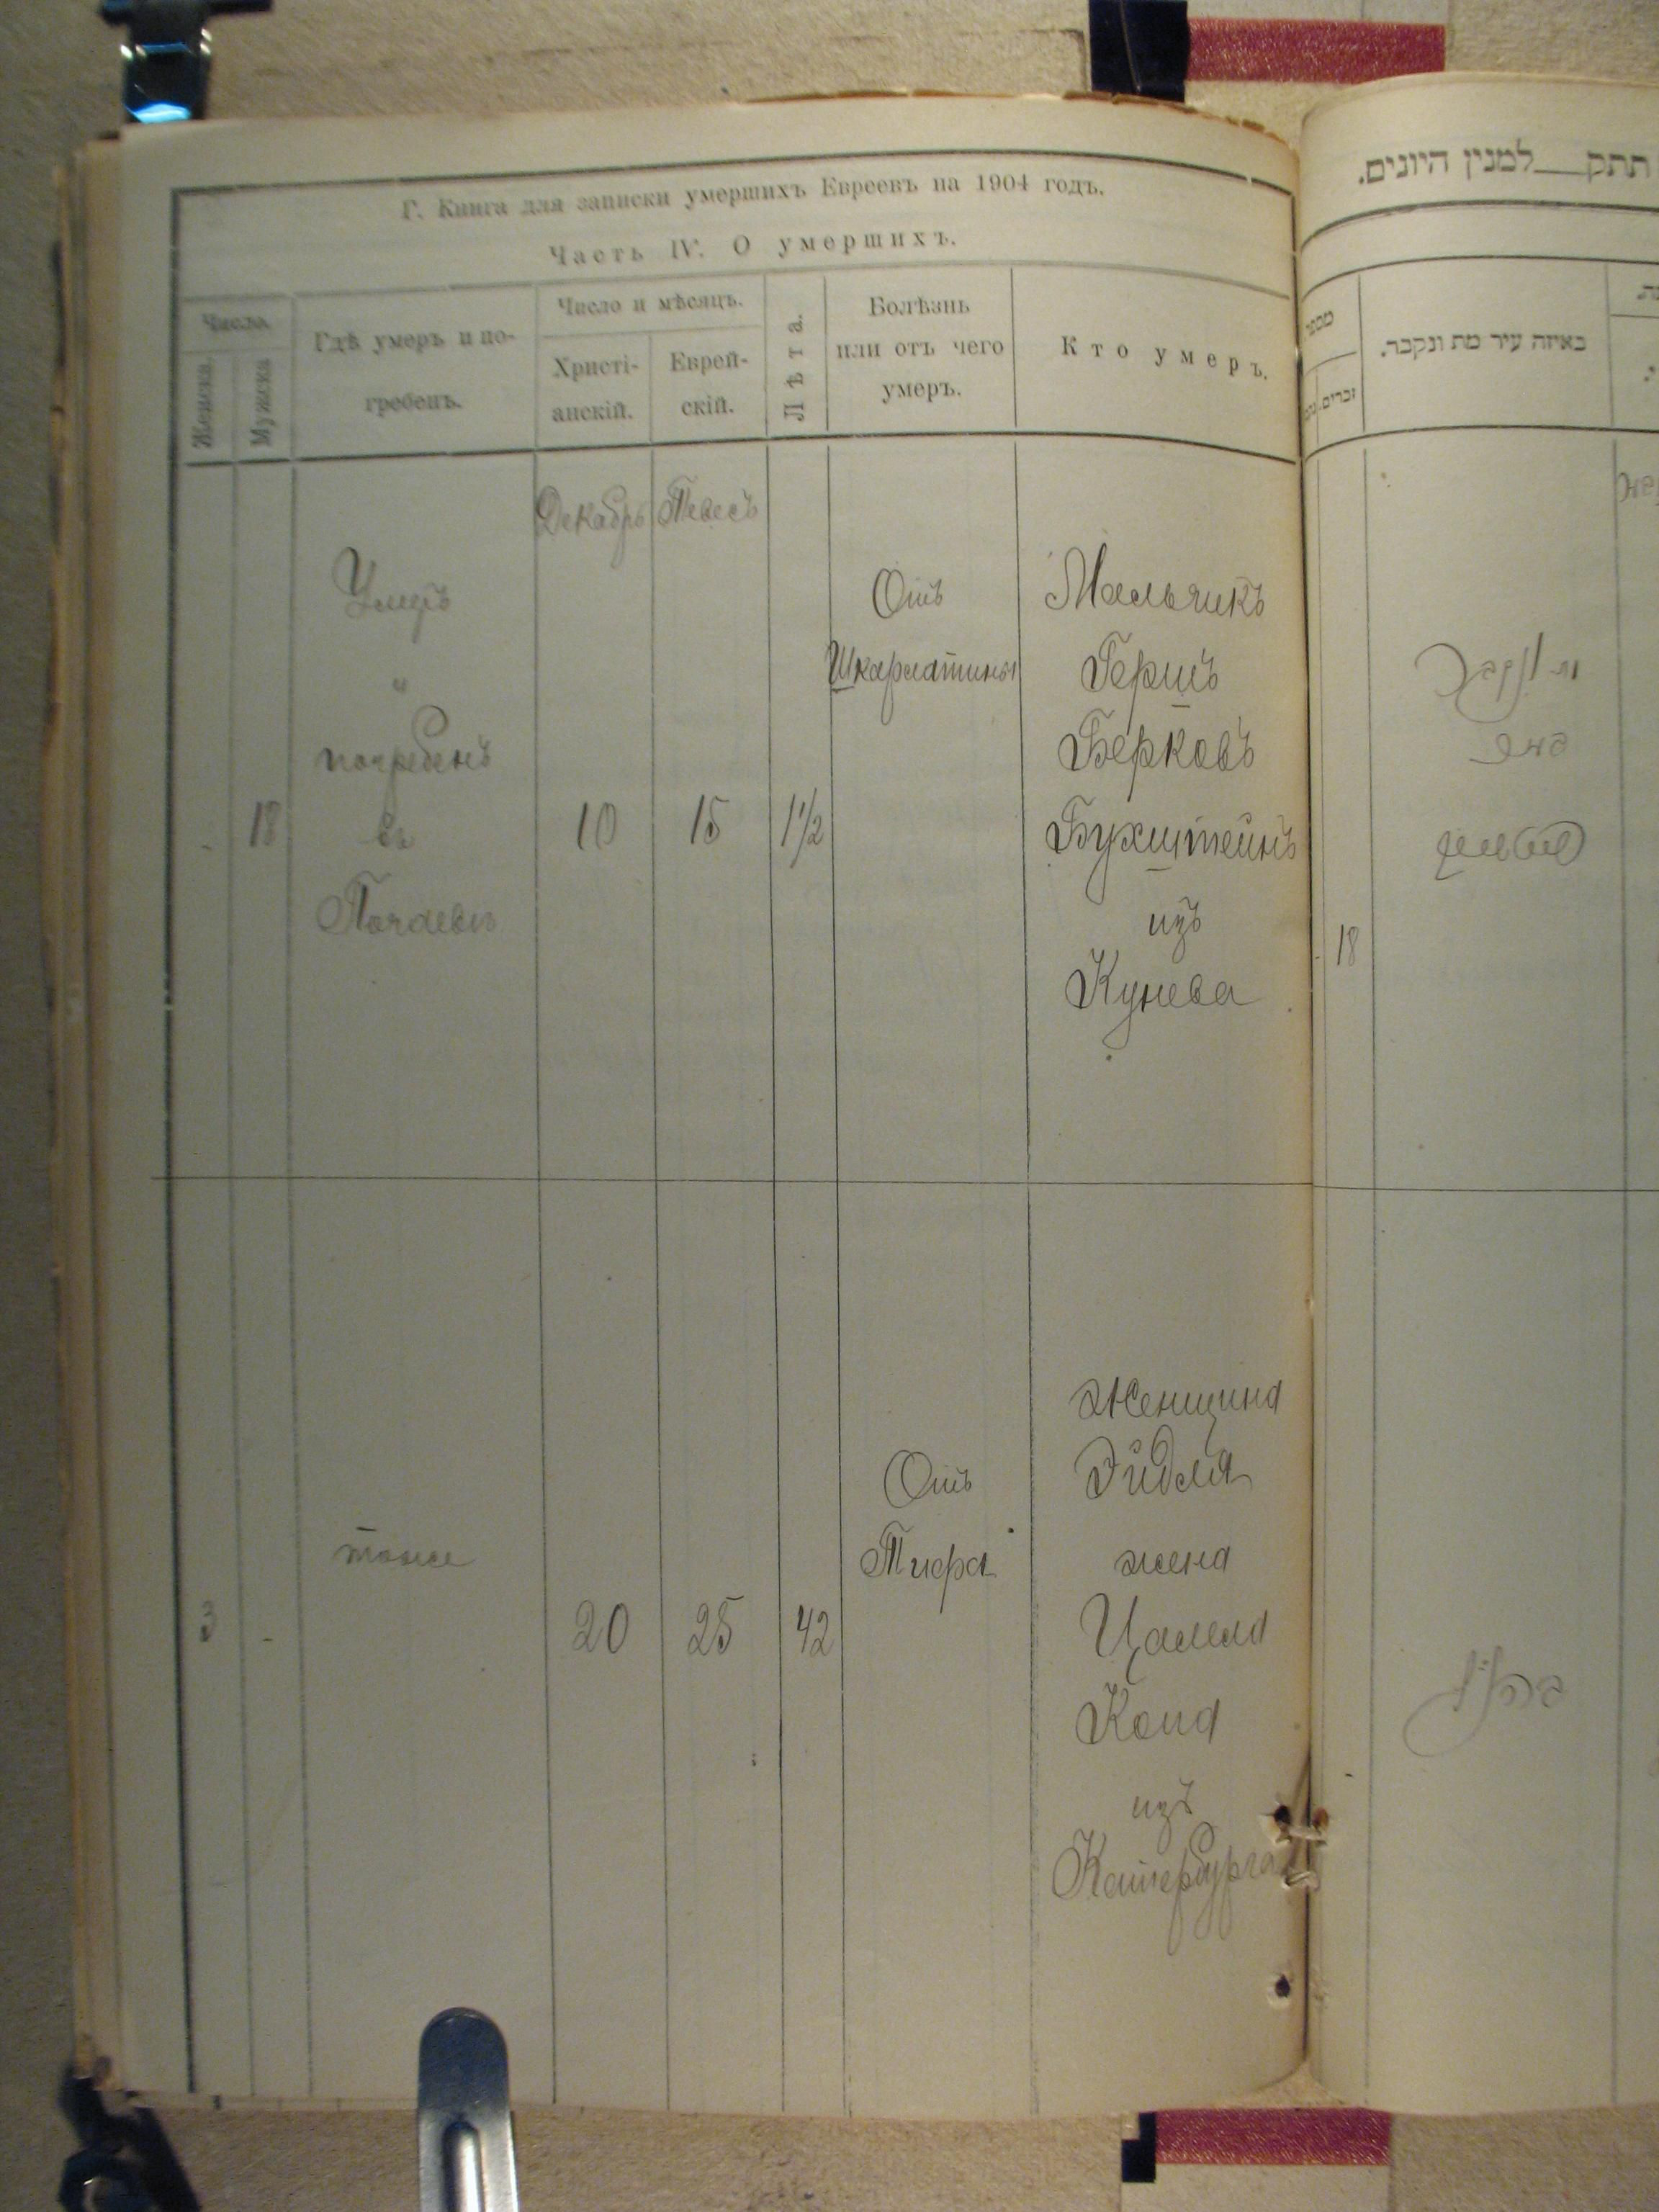 Г. Книга для записки умершихъ Евреевъ на 1904 годъ.
Часть IV. О умершихъ.
Числа.
Женска.
Мужска
Гдѣ умеръ и по-
гребенъ.
Число и мѣсяцъ.
Христі-
анскій.
Еврей-
скій.
Лѣта.
Болѣзнь
или отъ чего
умеръ.
Кто умеръ.
Декабрь Тевесъ
Умеръ
и
погребенъ
въ
Почаевѣ
18
10
15
1 1/2
Отъ
Шкарлатины
Мальчикъ
Гершъ
Берковъ
Бухштейнъ
изъ
Кунева
3
-
тоже
20
25
42
Отъ
Тифа
Женщина
Эйдля
жена
Цалела
изъ
Катербурга
תתק למנין היונים.
מספר
זכרים.
באיזה עיר מת ונקבר.
18